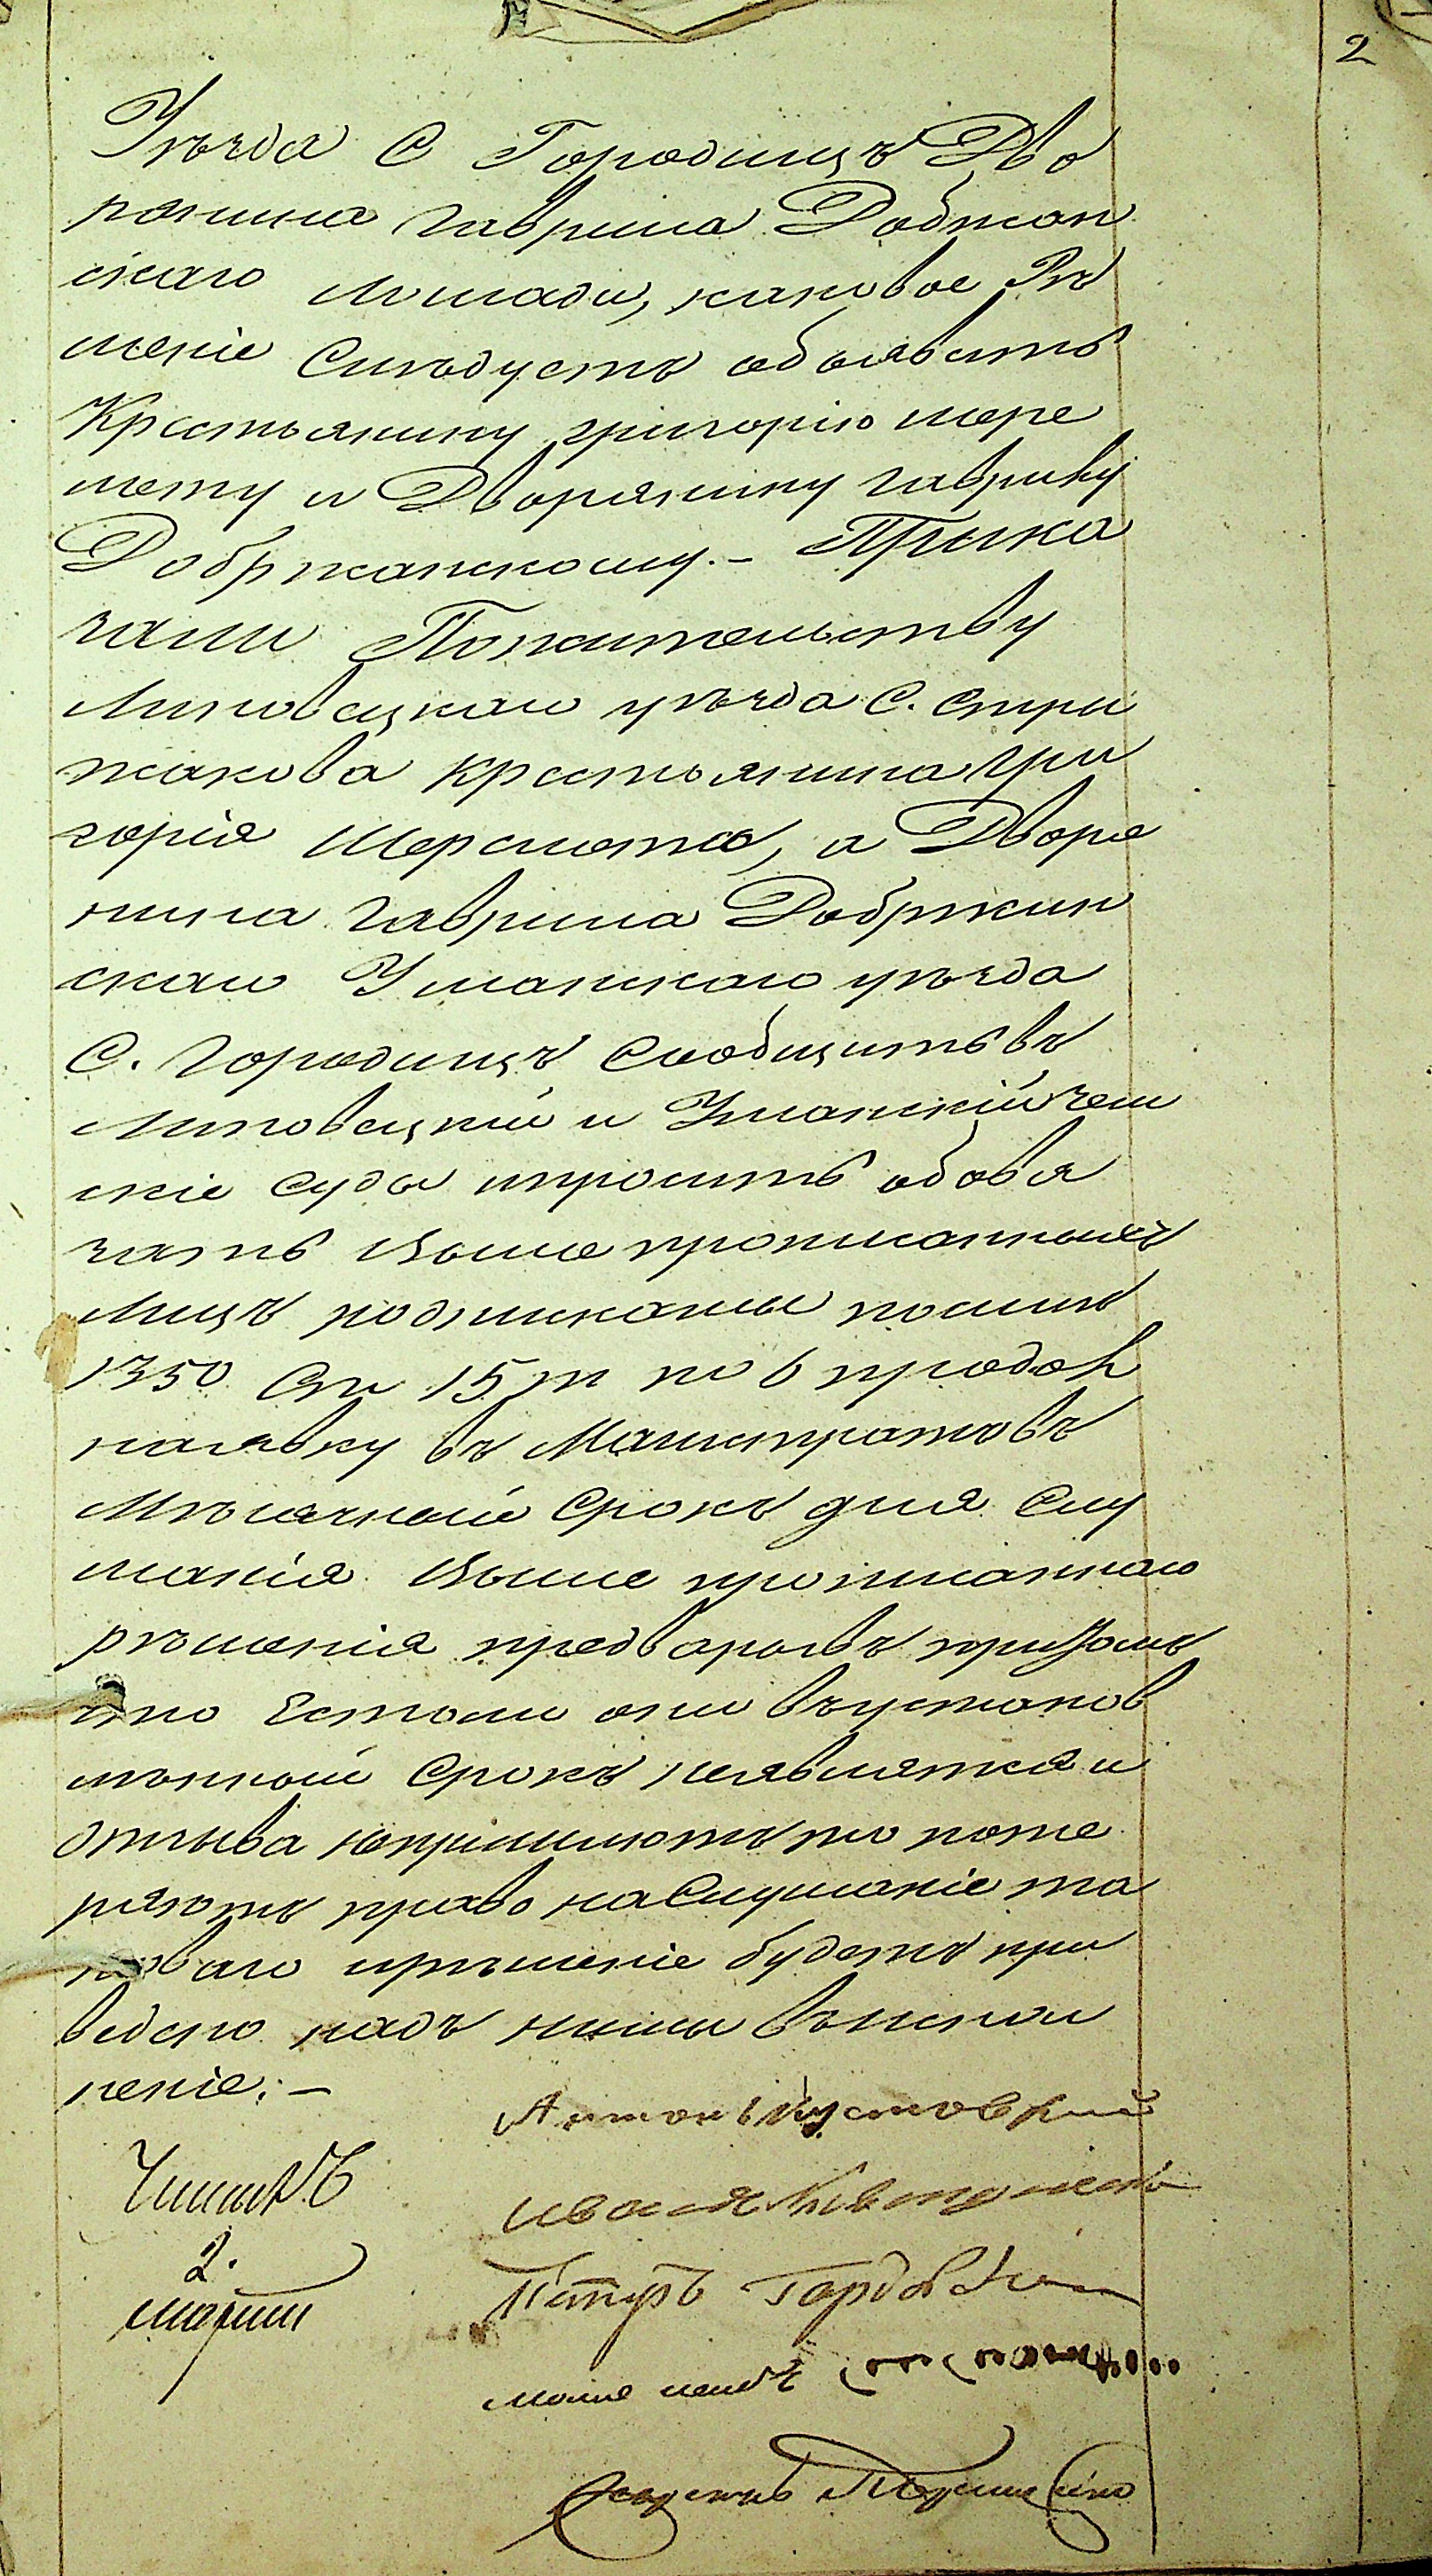 2
Уѣзда С Городищъ Дво
рянина гаврила Добжан
скаго лошади, каковое Рѣ
шеніе Слѣдуетъ объявить
Крестьянину григорію шере
мету и Дворянину гаврилу
Добржанскому. – Прика
зали Жительству
Липовецкаго уѣзда С. стри
жакова крестьянина гри
горія Шеремета, а Дворя
нина гаврила Добржан
скаго Уманскаго уѣзда
С. городищъ Сообщить въ
Липовецкій и Уманскій зем
скіе Суды ипросить обовя
зать выше прописанныхъ
лицъ подписками посили
1350 Ст 15 т по 6 прод
наявку въ Магистратъ въ
Мѣсячный Срокъ для Слу
шанія выше прописаннаго
рѣшенія предваривъ притомъ
что Естьли они въустанов
лѣнный Срокъ неявлятся и
отзыва непришлютъ то поте
ряютъ право наСлушаніе та
коваго ирѣшеніе будетъ при
ведено надъ ними въиспол
неніе: –
Антонъ
Иванъ
Петръ
2.
марта